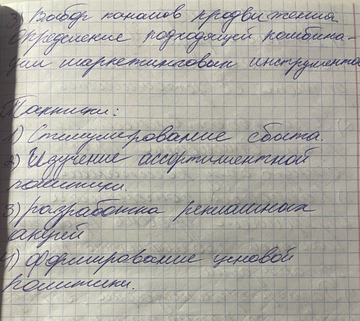 3) Выбор каналов продвижения
определение подходящей комбина-
ции маркетинговых инструментов
Тактики:
1) Стимулирование сбыта
2) Изучение ассортиментной
политики.
3) разработка рекламных
акций
4) формирование ценовой
политики.